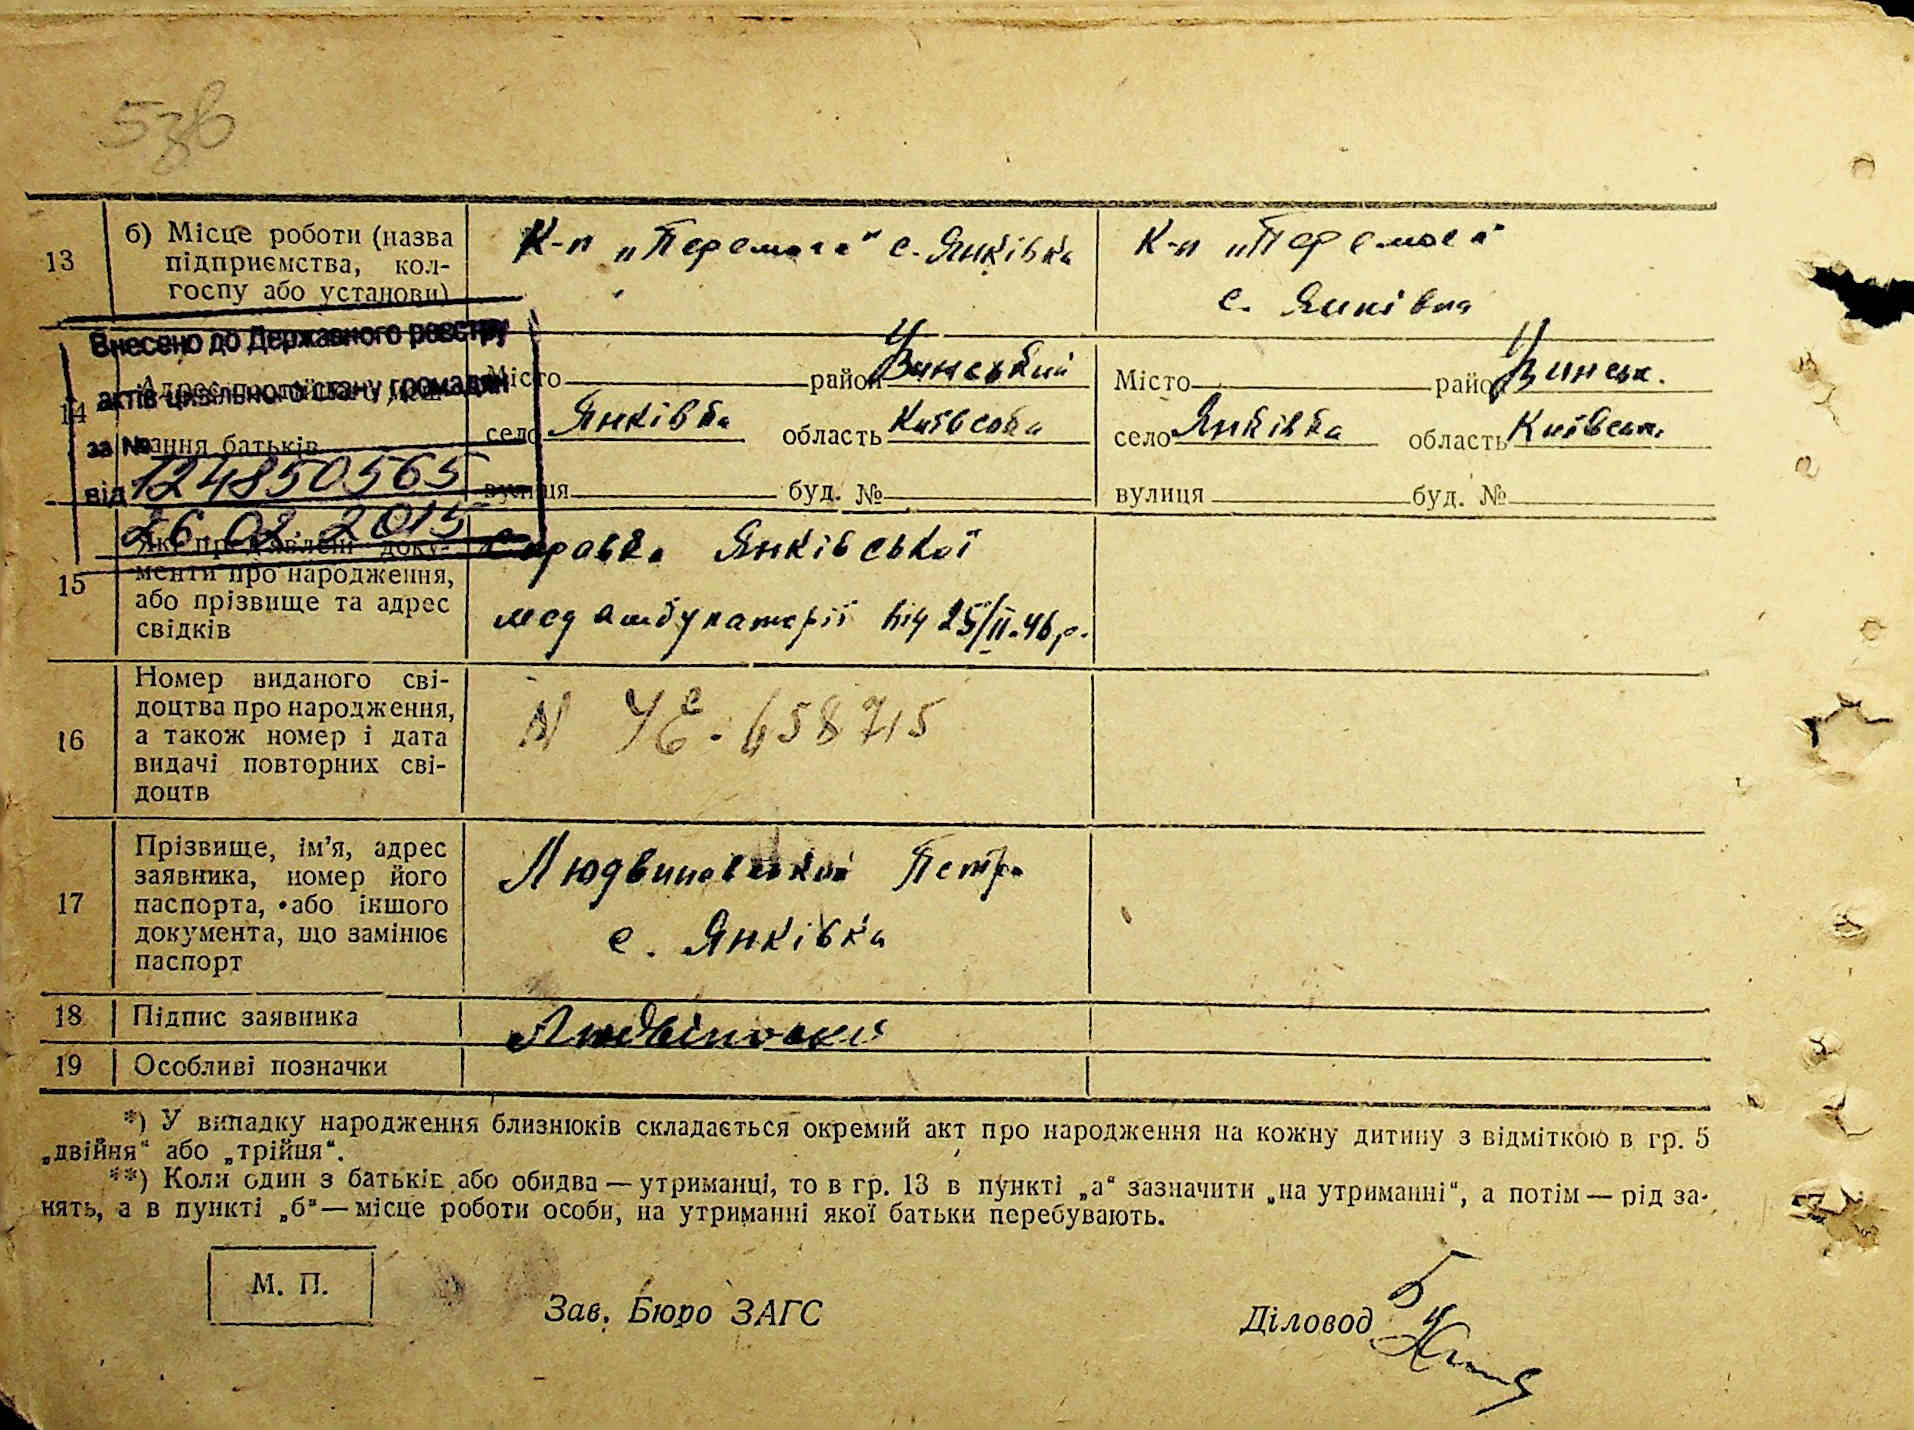 536
13
б) Місце роботи (назва
підприємства, кол-
госпу або установи)
К-п „Перемога" с. Янківка
К-п „Перемога"
с. Янківка
Внесено до Державного реєстру
актів цивільного стану громадян
за №
від 124850565
26.02.2015
14
Місто район
село Янківка область Київська
вулиця буд. №
Місто район
село Янківка область Київськ.
вулиця буд. №
15
менти про народження,
або прізвище та адрес
свідків
Справка Янківської
мед амбулаторії від 25/II.46 р.
16
Номер виданого сві-
доцтва про народження,
а також номер і дата
видачі повторних сві-
доцтв
N УЄ. 658715
17
Прізвище, ім'я, адрес
заявника, номер його
паспорта, або іншого
документа, що замінює
паспорт
Людвиновський Петро
с. Янківка
18 Підпис заявника
19 Особливі позначки
*) У випадку народження близнюків складається окремий акт про народження на кожну дитину з відміткою в гр. 5
„двійня" або „трійня".
**) Коли один з батьків або обидва — утриманці, то в гр. 13 в пункті „а" зазначити „на утриманні", а потім — рід за-
нять, а в пункті „б" — місце роботи особи, на утриманні якої батьки перебувають.
М. П.
Зав. Бюро ЗАГС
Діловод